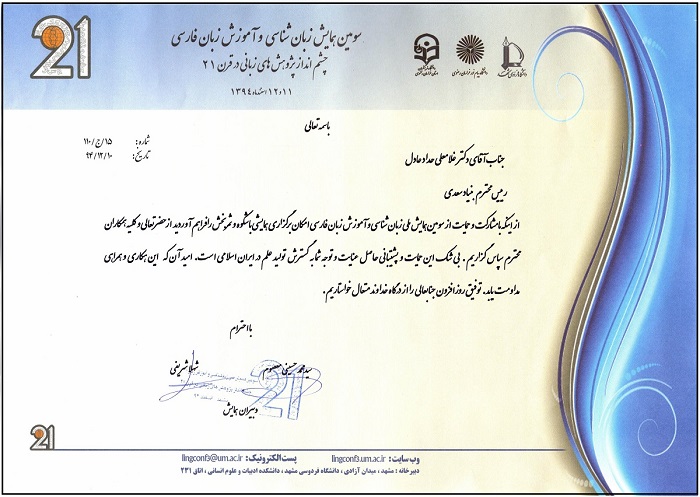 سومین همایش زبان شناسی و آموزش زبان فارسی
چشم انداز پژوهش های زبانی در قرن ۲۱
۱۱ و ۱۲ اسفند ۱۳۹۴
21
باسمه تعالی
شماره: ۱۵/ج/۱۱۰
تاریخ: ۹۴/۱۲/۱۰
جناب آقای دکتر غلامعلی حداد عادل
رییس محترم بنیاد سعدی
از اینکه با مشارکت و حمایت از سومین همایش ملی زبان شناسی و آموزش زبان فارسی امکان برگزاری همایشی باشکوه و ثمربخش را فراهم آوردید از حضرتعالی و کلیه همکاران
محترم سپاس گزاریم. بی شک این حمایت و پشتیبانی حاصل عنایت و توجه شما به گسترش تولید علم در ایران اسلامی است. امید آن که این همکاری و همراهی
مداومت یابد. توفیق روز افزون جنابعالی را از درگاه خداوند متعال خواستاریم.
با احترام
سید محمد حسینی معصوم شهلا شریفی
دبیران همایش
21
وب سایت: lingconf3.um.ac.ir پست الکترونیک: lingconf3@um.ac.ir
دبیرخانه: مشهد، میدان آزادی، دانشگاه فردوسی مشهد، دانشکده ادبیات و علوم انسانی، اتاق ۲۳۱